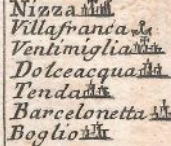 Nizza
Villafranca
Ventimiglia
Dolceacqua
Tenda
Barcelonetta
Boglio